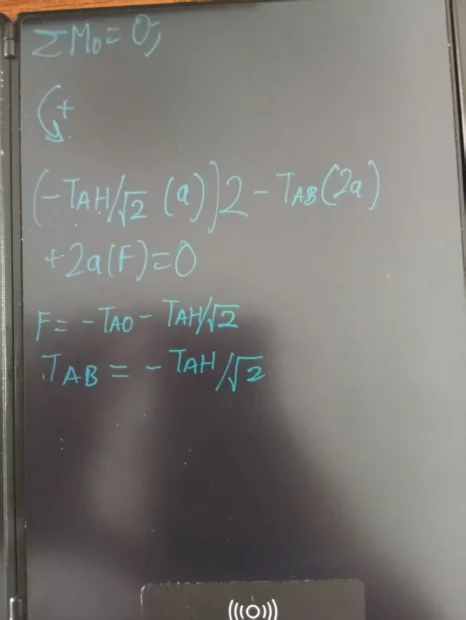 ΣM₀ = 0,
(+
(-TAH/√2 (a))2 - TAB(2a)
+2a(F)=0
F = -TAO - TAH/√2
TAB = - TAH/√2